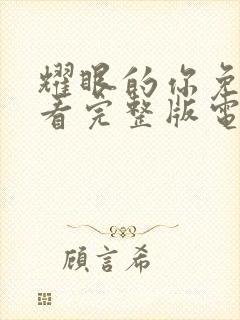 耀眼的你免
看完整版電
顧言希